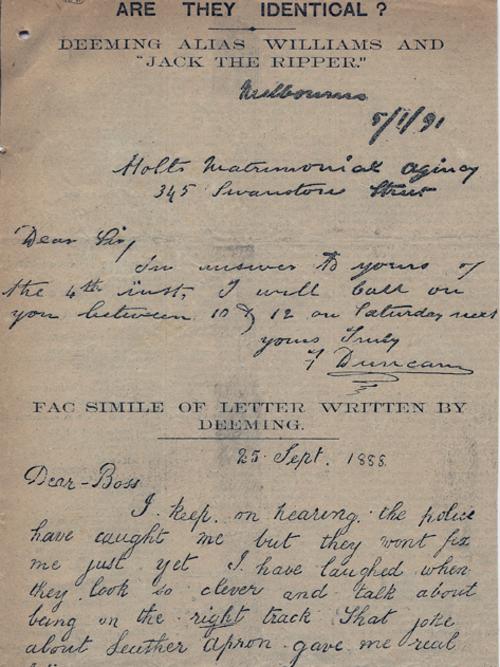 ARE THEY IDENTICAL?
DEEMING ALIAS WILLIAMS AND
"JACK THE RIPPER."
Melbourne
5/1/91
Holts Matrimonial Agency
345 Swanston Street
Dear Sir,
In answer to yours of
the 4th inst, I will call on
you between 10 & 12 on Saturday next
yours Truly
Duncan
FAC SIMILE OF LETTER WRITTEN BY
DEEMING.
25 Sept. 1888.
Dear-Boss
I keep on hearing the police
have caught me but they wont fix
me just yet I have laughed when
they look so clever and talk about
being on the right track That joke
about Leather Apron gave me real